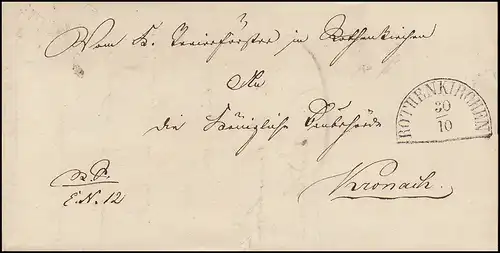 Vom K. Revierförster in Rothenkirchen
An
die Königliche Baubehörde
ROTHENKIRCHEN
30
10
R. S.
E. N. 12
Kronach.